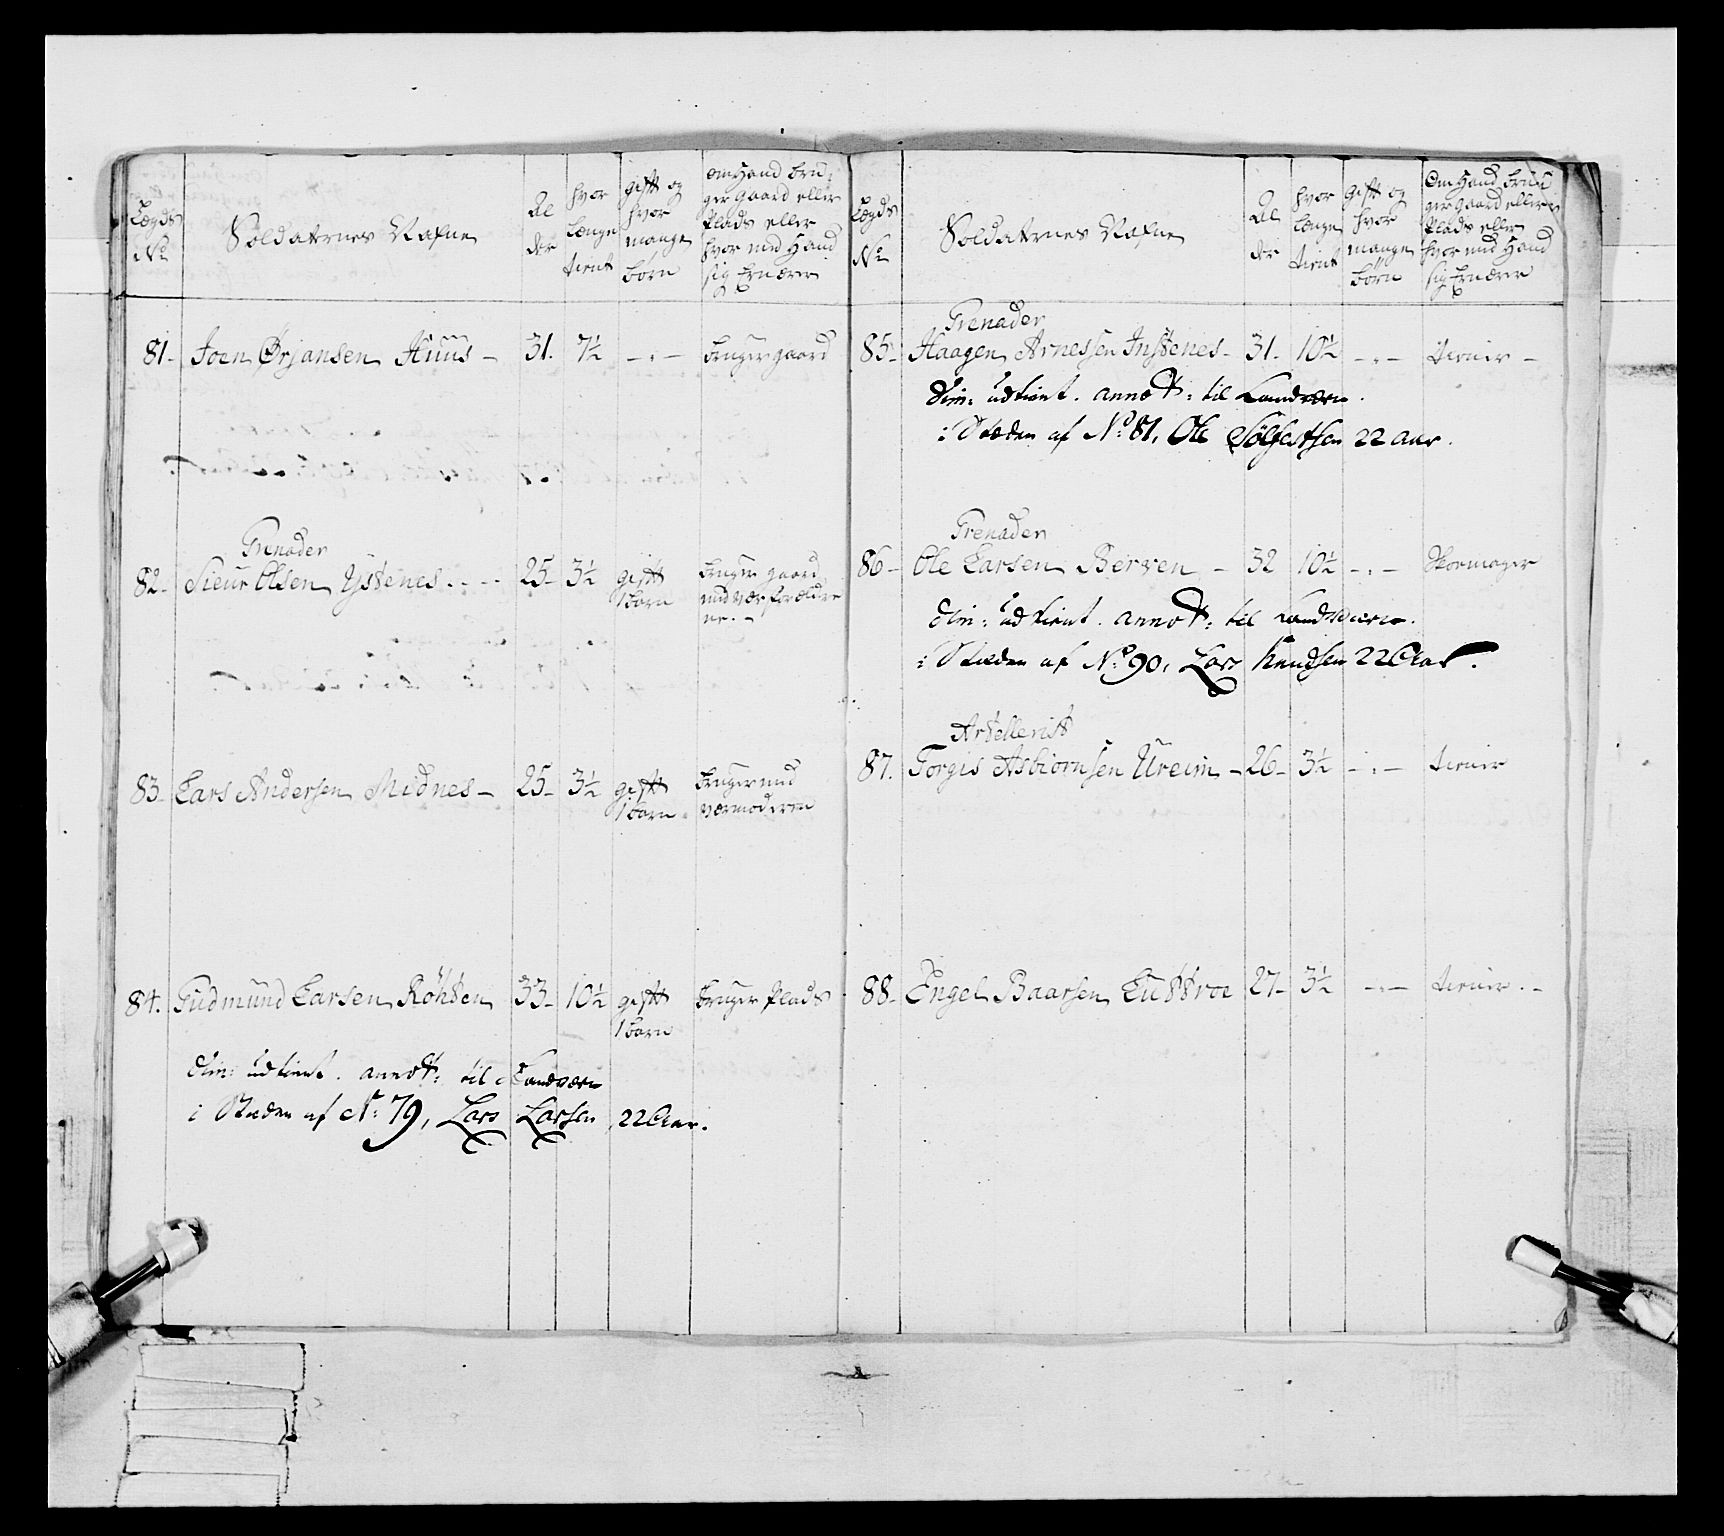 Lægds
No
Soldaternes Nafne
Al
der
hvor
længe
tient
gift og
hvor
mange
børn
om Hand bru-
ger gaard eller
Plads eller
hvor med Hand
sig Ernærer
81- Joen Ørjansen Huus - 31. 7½ - . - bruger gaard
Grenader
82- Sieur Olsen Ystenes . . - - 25- 3½ gift bruger gaard
1 barn med værforældre
ne. -
83- Lars Andersen Midnes - 25- 3½ gift bruger med
1 barn . værmoderen
84. Gudmund Larsen Röhten 33- 10½ gift bruger Plads
1 barn
dim: udtient . annot: til Landværn
i Stæden af No: 79, Lars Larsen 22 Aar.
Lægds
No
Soldaternes Nafne
Al
der
hvor
længe
tient
gift og
hvor
mange
børn
Om Hand bru
ger gaard eller
Plads eller
hvor med Hand
sig Ernærer
Grenader
85- Haagen Arnessen Instenes- 31- 10½ - . - tiener -
dim: udtient . annot: til Landværn .
i Stæden af No: 81, Ole Sölfestsen 22 aar.
Grenader
86- Ole Larsen Berven - 32 10½ - . - Skoemager
dim: udtient . annot: til Landværn.
i Stæden af No: 90, Lars Knudsen 22 Aar.
Artellerist
87. Torgis Asbiørnsen Ureim - 26- 3½ - . - tiener
88- Engel Baarsen Luttroe 27- 3½ - . - tiener . -